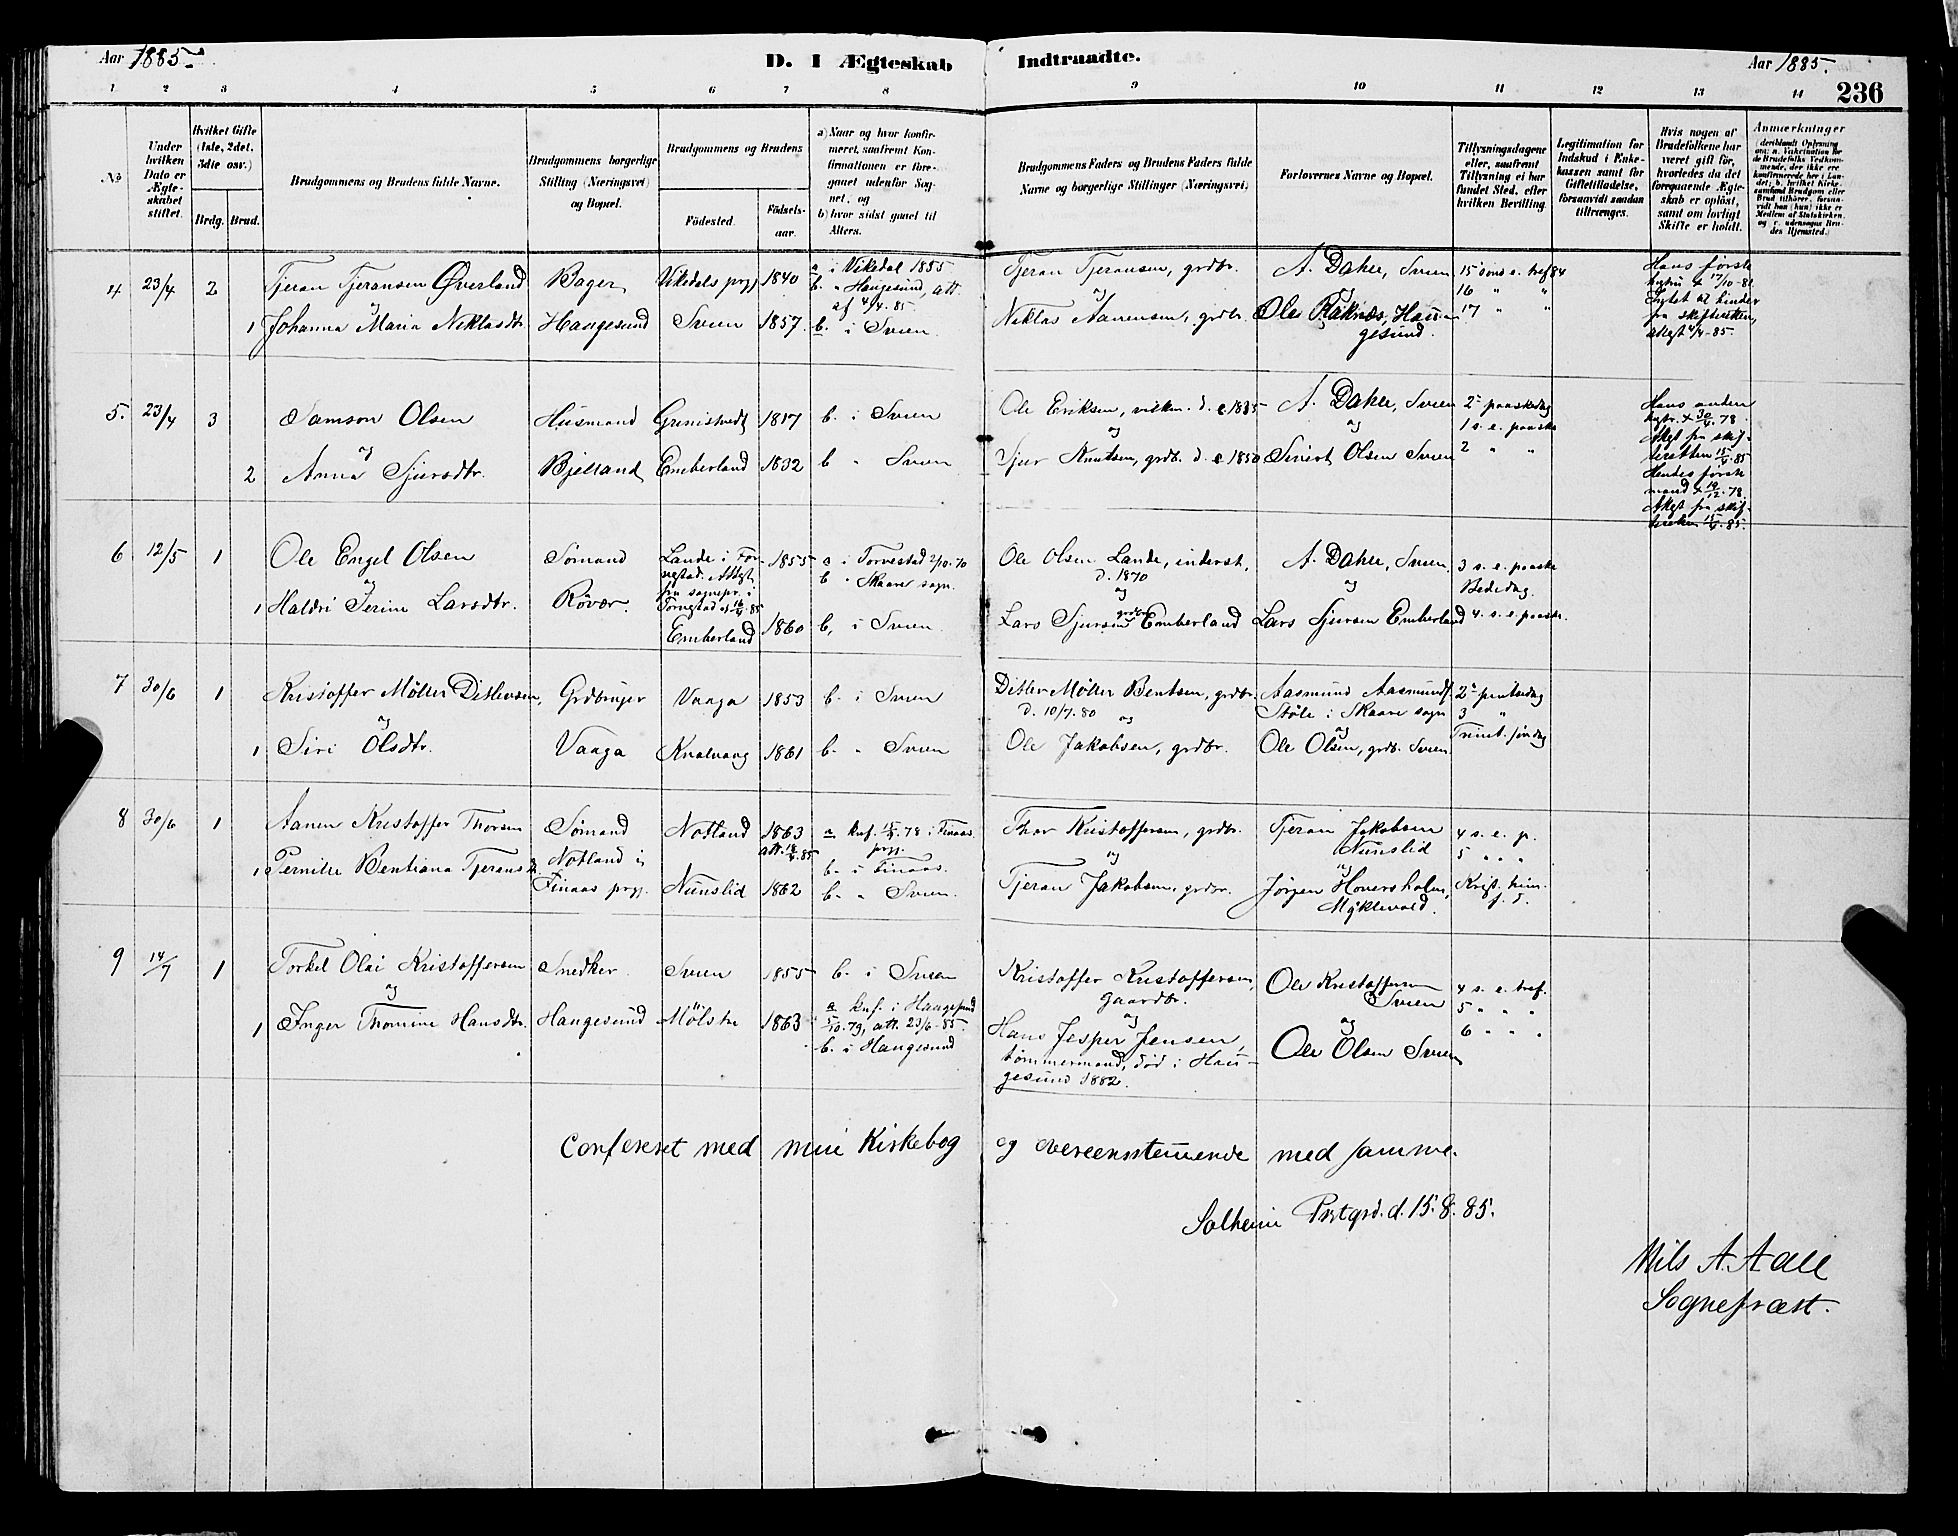 Aar 1885.
D. I Ægteskab Indtraadte.
Aar 1885.
236
1 2 3 4 5 6 7 8 9 10 11 12 13 14
No
Under hvilken Dato er Ægteskabet stiftet.
Hvilket Gifte (1ste, 2det, 3die osv.)
Brdg. Brud.
Brudgommens og Brudens fulde Navne.
Brudgommens borgerlige Stilling (Næringsvei) og Bopæl.
Brudgommens og Brudens
Födested. Födsels-aar.
a) Naar og hvor konfir-
meret, saafremt Kon-
firmationen er fore-
gaaet udenfor Sog-
net, og
b) hvor sidst gaaet til
Alters.
Brudgommens Faders og Brudens Faders fulde
Navne og borgerlige Stillinger (Næringsvei)
Forlovernes Navne og Bopæl.
Tillysningsdagene
eller, saafremt
Tillysning ei har
fundet Sted, efter
hvilken Bevilling.
Legitimation for
Indskud i Enke-
kassen samt for
Giftetilladelse,
forsaavidt saadan
tiltrænges.
Hvis nogen af
Brudefolkene har
været gift før,
hvorledes da det
foregaaende Ægte-
skab er opløst,
samt om lovligt
Skifte er holdt.
Anmærkninger
4 23/4 2 Tjeran Tjeransen Øverland Bager Vikedals prgj 1840 a i Vikedal 1855
b. " Haugesund, att
af 4/4. 85.
og
1 Johanna Maria Niklasdtr. Haugesund Sveen 1857. b. i Sveen
Tjeran Tjeransen, grdbr. A. Dahle, Sveen 15 sønd e. tref 84
og 16 " "
Niklas Aanensen, grdbr. Ole Raknæs, Hau-
gesund. 17 " "
Hans første
hustru + 17/10-82
fra skifteretten,
4/4-85.
5. 23/4 3 Samson Olsen Husmand 1817 b. i Sveen
og
2 Anna Sjursdtr. Bjelland Emberland 1832 b " Sveen
Ole Eriksen, A. Dahle, Sveen 2den paaskedag
og og 1 s. e. paaske
Sjur Knutsen, grdb. d. 1850 Sivert Olsen Sveen 2 " "
Hans anden
hustr. + 30/4. 78.
Attest fra skif-
teretten 15/4. 85
Hendes første
mand + 19/12. 78.
Attest fra skif-
teretten 15/4. 85.
6 12/5 1 Ole Engel Olsen Sømand Lande i Tor-
vestad. Attest
fra sognepr. i
Torvestad af 16/4 85 1855 a i Torvestad 2/10.70
b " Skaare sogn.
og
1 Haldri Serine Larsdtr. Røvær. Emberland 1860 b, i Sveen.
Ole Olsen Lande, inderst,
d. 1870 A. Dahle, Sveen 3 s. e. paaske
og og Bededag.
Lars Sjursen grdbr. Emberland Lars Sjursen Emberland 4. s. e. paaske.
7 30/6 1 Kristoffer Møller Ditlevsen, Grdbruger Vaaga 1853 b. i Sveen
og
1 Siri Olsdtr. Vaaga Kvalvaag 1861 b. " Sveen
Ditlev Møller Bentsen, grdbr.
d. 10/7. 80 Aasmund Aasmunds.
Støle i Skaare sogn 2den pintsedag
og og 3 "
Ole Jakobsen, grdbr. Ole Olsen, grdb. Sveen Trinit. søndag
8 30/6 1 Aanen Kristoffer Thorsen Sømand Notland 1863 a knf. 78 i Finaas
prgj.
att. 18/4.85
b. i Finaas.
1 Pernille Bentiana Tjeransd. Notland i
Finaas prgj. Nunslid 1862 b. " Sveen.
Thor Kristoffersen, grdbr. Tjeran Jakobsen
Nunslid 4 s. e. p.
og og 5 " " "
Tjeran Jakobsen, grdbr. Jørgen Hoversholm,
Myklevold. Krist. him.
f. d.
9 14/7 1 Torkel Olai Kristoffersen Snedker Sveen 1855 b. i Sveen
og
1 Inger Thomine Hansdtr. Haugesund Mölstre 1863 a knf. i Haugesund
5/10.79, att. 23/6-85.
b. i Haugesund
Kristoffer Kristoffersen,
gaardbr. Ole Kristoffersen
Sveen 4 s. e. tref.
5 " " "
og og 6 " " "
Hans Jesper Jensen,
tømmermand, död i Hau-
gesund 1882. Ole Olsen Sveen
Confereret med min Kirkebog og overeensstemmende med samme.
Solheim Prstgrd. d. 15. 8. 85.
Nils A. Aall
Sognepræst.